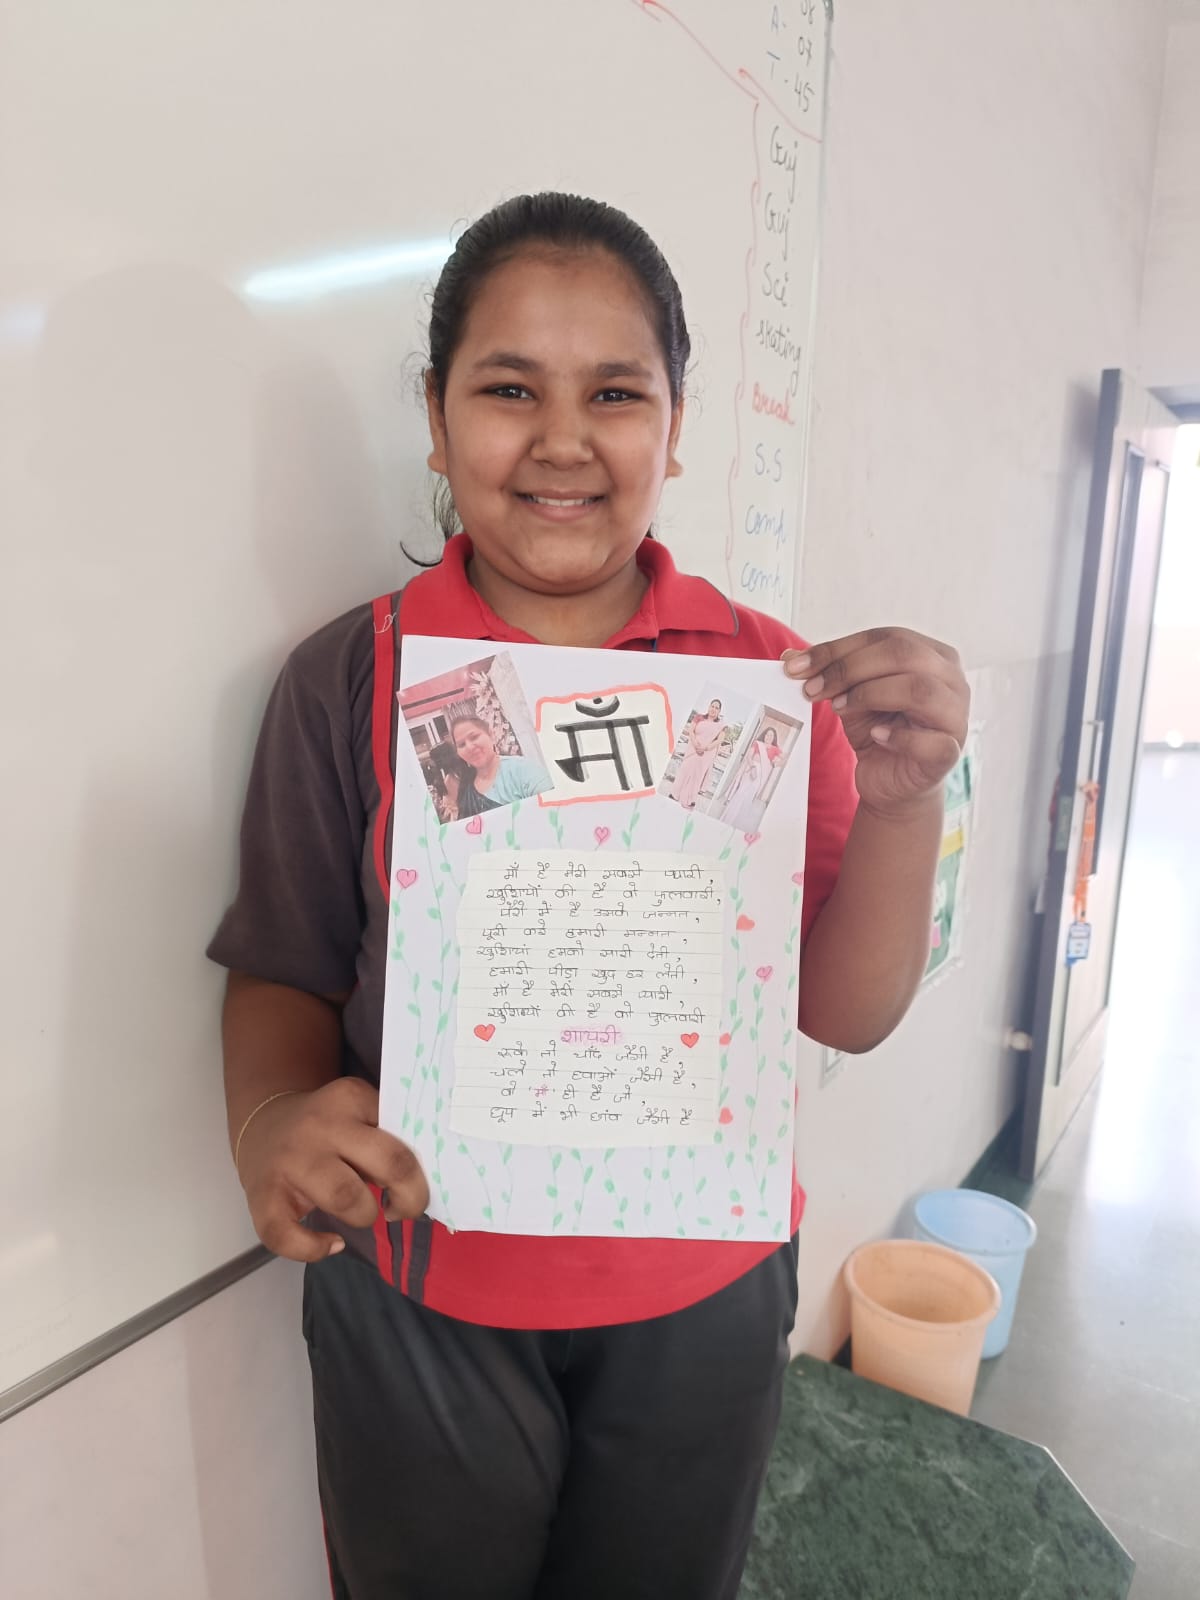 A - 08
07
T - 45
Guj
Guj
Sci
skating
Break
S.S
Comp
comp
माँ
माँ है मेरी सबसे प्यारी,
खुशियों की है वो फुलवारी,
पैरों में है उसके जन्नत,
पूरी करे हमारी मन्नत,
खुशियां हमको सारी देती,
हमारी पीड़ा खुद हर लेती,
माँ है मेरी सबसे प्यारी,
खुशियों की है वो फुलवारी
शायरी
रुके तो चाँद जैसी है,
चले तो हवाओं जैसी है,
वो 'माँ' ही है जो,
धूप में भी छांव जैसी है